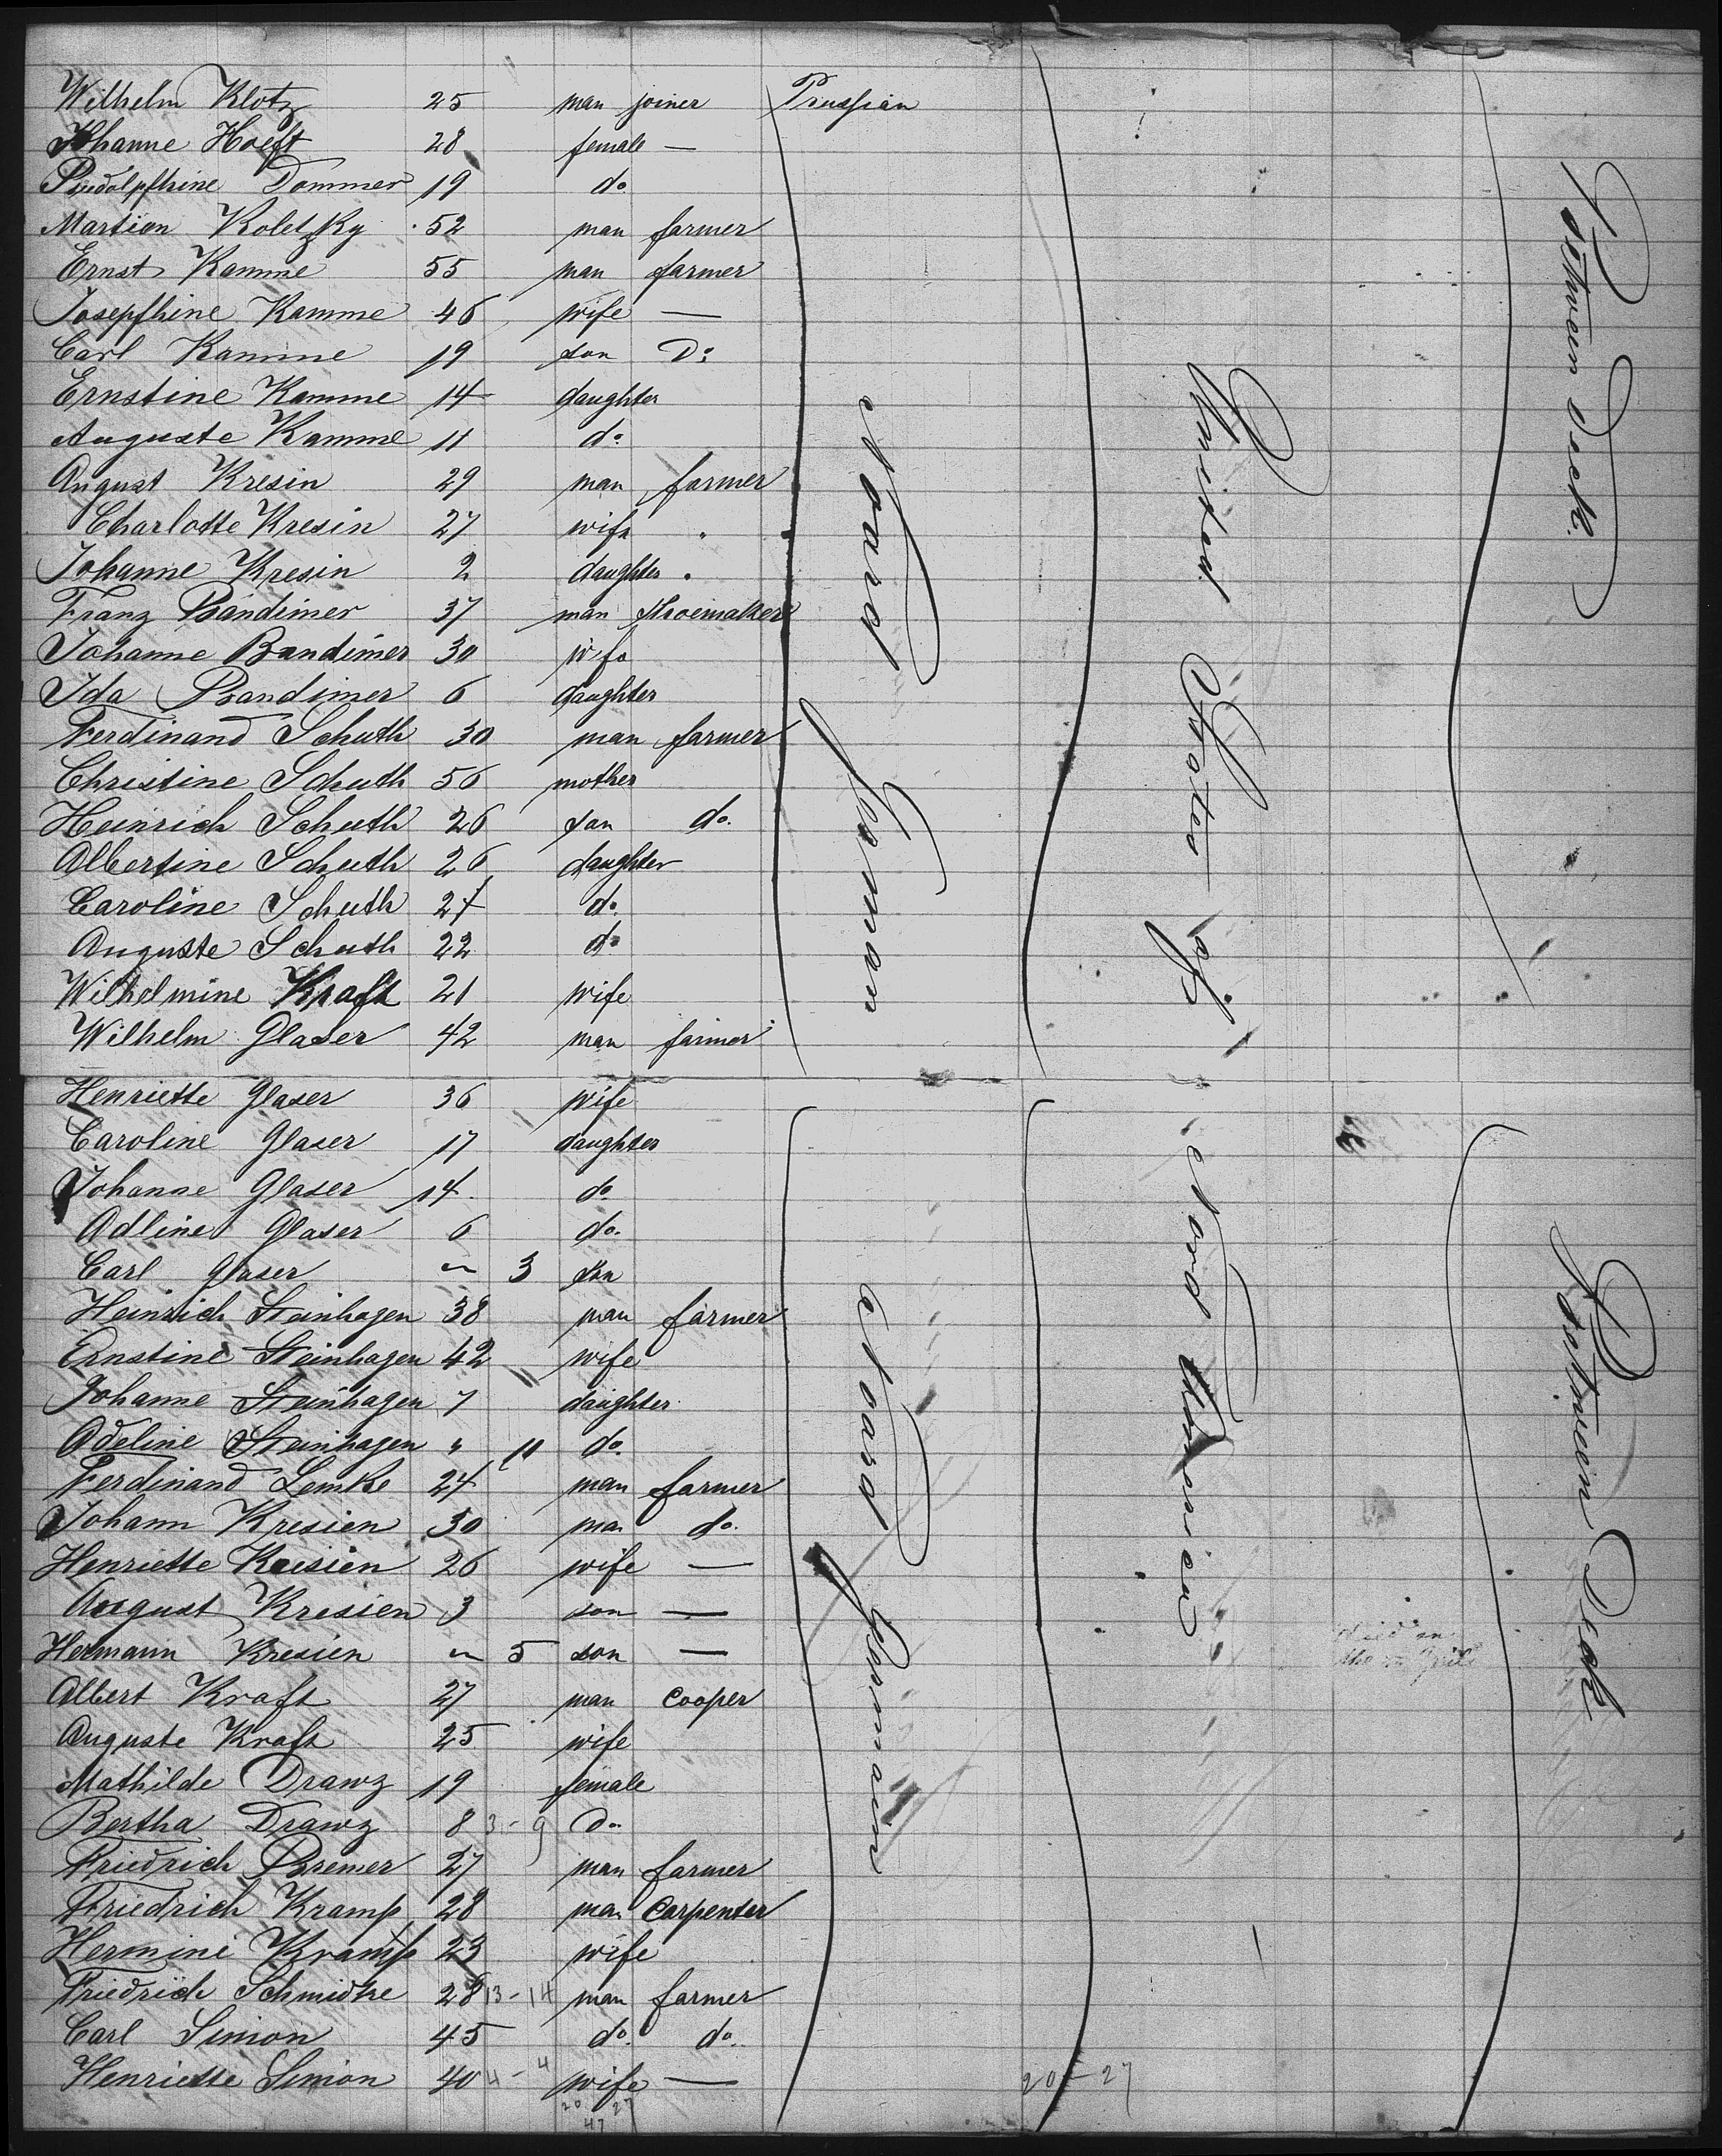 Wilhelm Klotz 25 man joiner Prussian
Johanne Hoeft 28 female —
Rudolpfhine Dommer 19 do
Martien Koletzky 52 man farmer
Ernst Kamme 55 man farmer
Josepfhine Kamme 46 wife —
Carl Kamme 19 son Do
Ernstine Kamme 14 daughter
Auguste Kamme 11 do
August Kresin 29 man farmer
Charlotte Kresin 27 wife
Johanne Kresin 2 daughter
Franz Bandimer 37 man shoemaker
Johanne Bandimer 30 wife
Ida Bandimer 6 daughter
Ferdinand Schuth 30 man farmer
Christine Schuth 56 mother
Heinrich Schuth 26 son do.
Albertine Schuth 26 daughter
Caroline Schuth 24 do.
Auguste Schuth 22 do
Wilhelmine Kraft 21 wife
Wilhelm Glaser 42 man farmer
Nord German
United States of
Zwischen Deck.
Henriette Glaser 36 wife
Caroline Glaser 17 daughter
Johanne Glaser 14 do
Adline Glaser 6 do.
Carl Glaser " 3 son
Heinrich Steinhagen 38 man farmer
Ernstine Steinhagen 42 wife
Johanne Steinhagen 7 daughter
Adeline Steinhagen " 11 do.
Ferdinand Lemke 24 man farmer
Johann Kresien 30 man do.
Henriette Kresien 26 wife —
August Kresien 3 son —
Hermann Kresien " 5 son —
Albert Kraft 27 man Cooper
Auguste Kraft 25 wife
Mathilde Drawz 19 female
Bertha Drawz 8 3 - 9 Do
Friedrich Bremer 27 man farmer
Friedrich Kramp 28 man Carpenter
Hermine Kramp 23 wife
Friedrich Schmidtke 28 13 - 14 man farmer
Carl Simon 45 do. do.
Henriette Simon 40 4 - 4 wife —
20 27
47
20 - 27
Nord German
Nord America
died on
Zwischen Deck